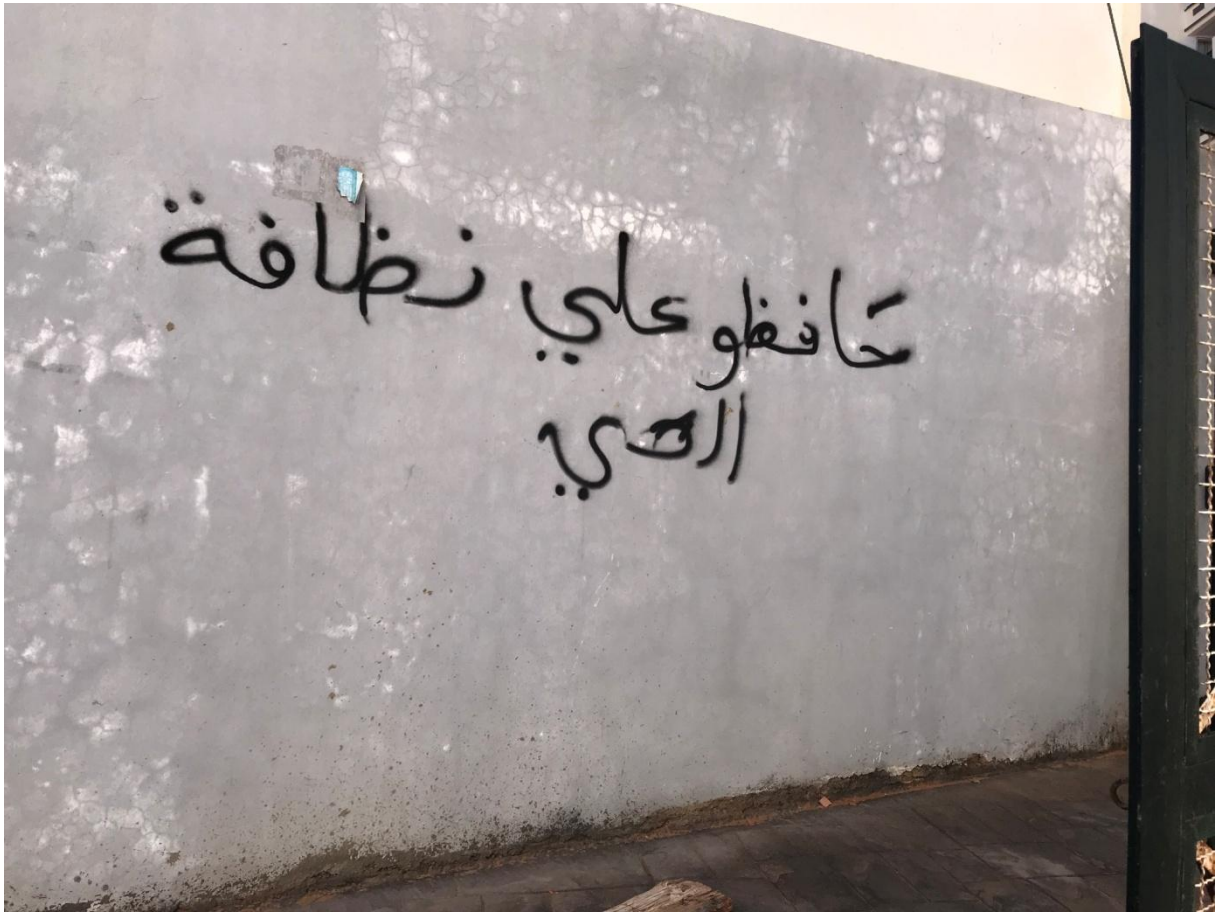 حافظو علي نظافة
الحي